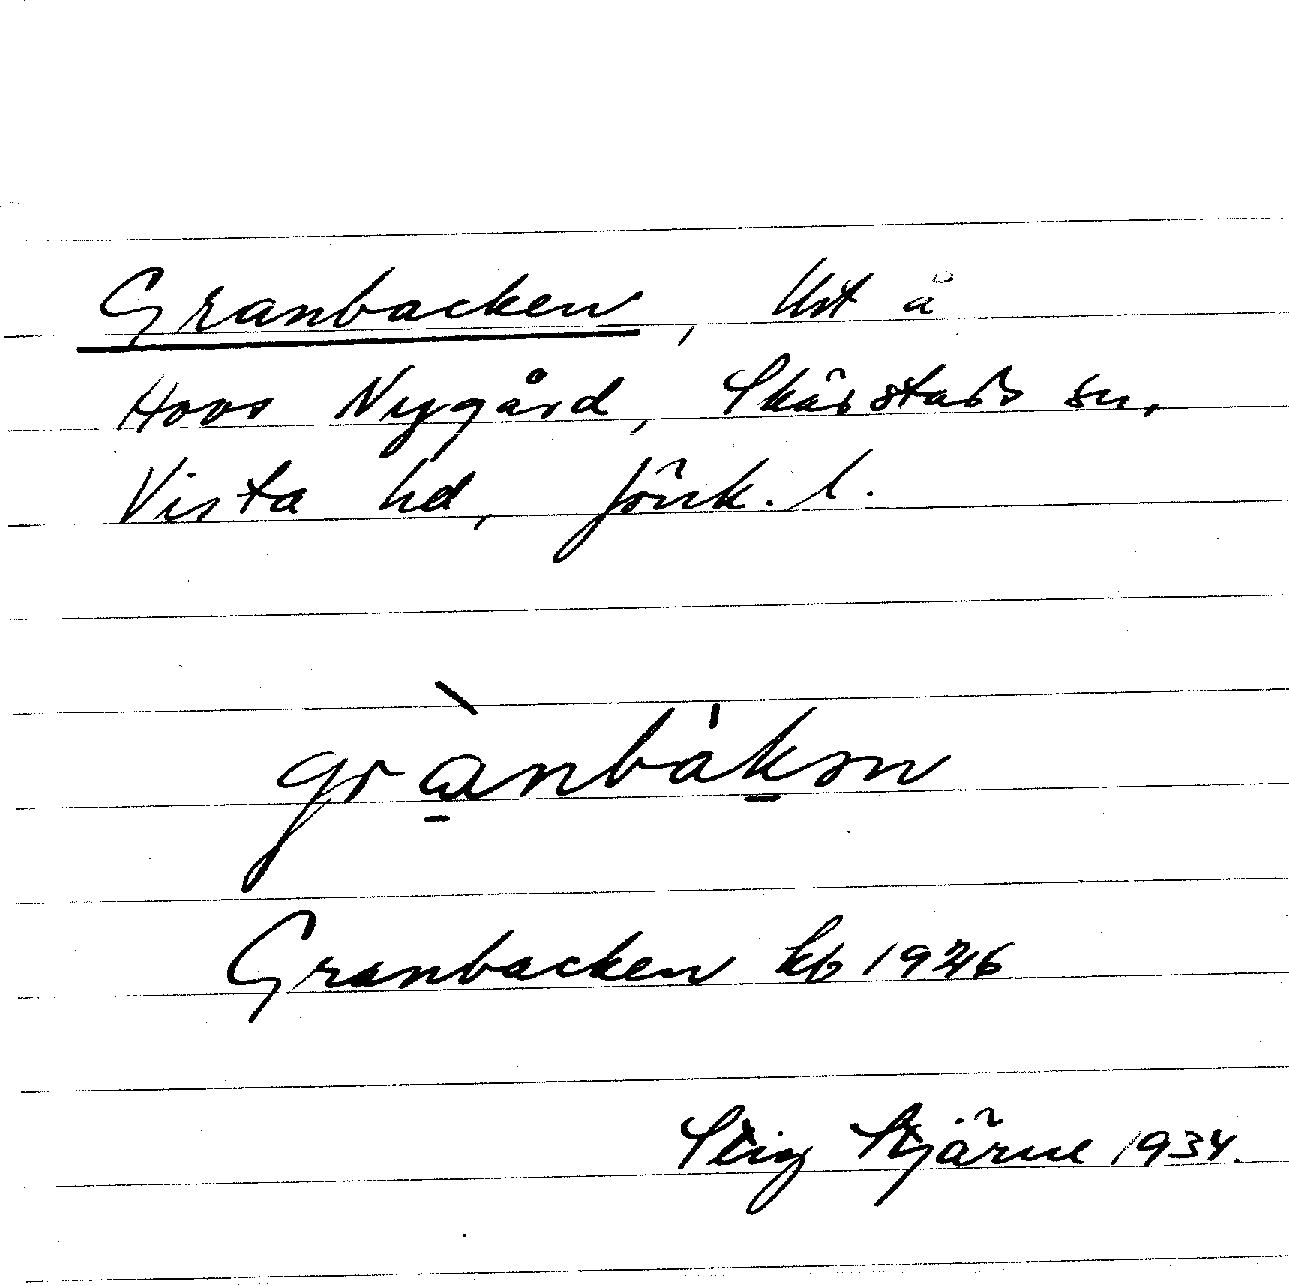 Granbacken, Ust å
Hovs Nygård, Skärstads sn,
Vista hd, Jönk. l.
grànbàkən
Granbacken kb 1926
Stig Stjärne 1934.